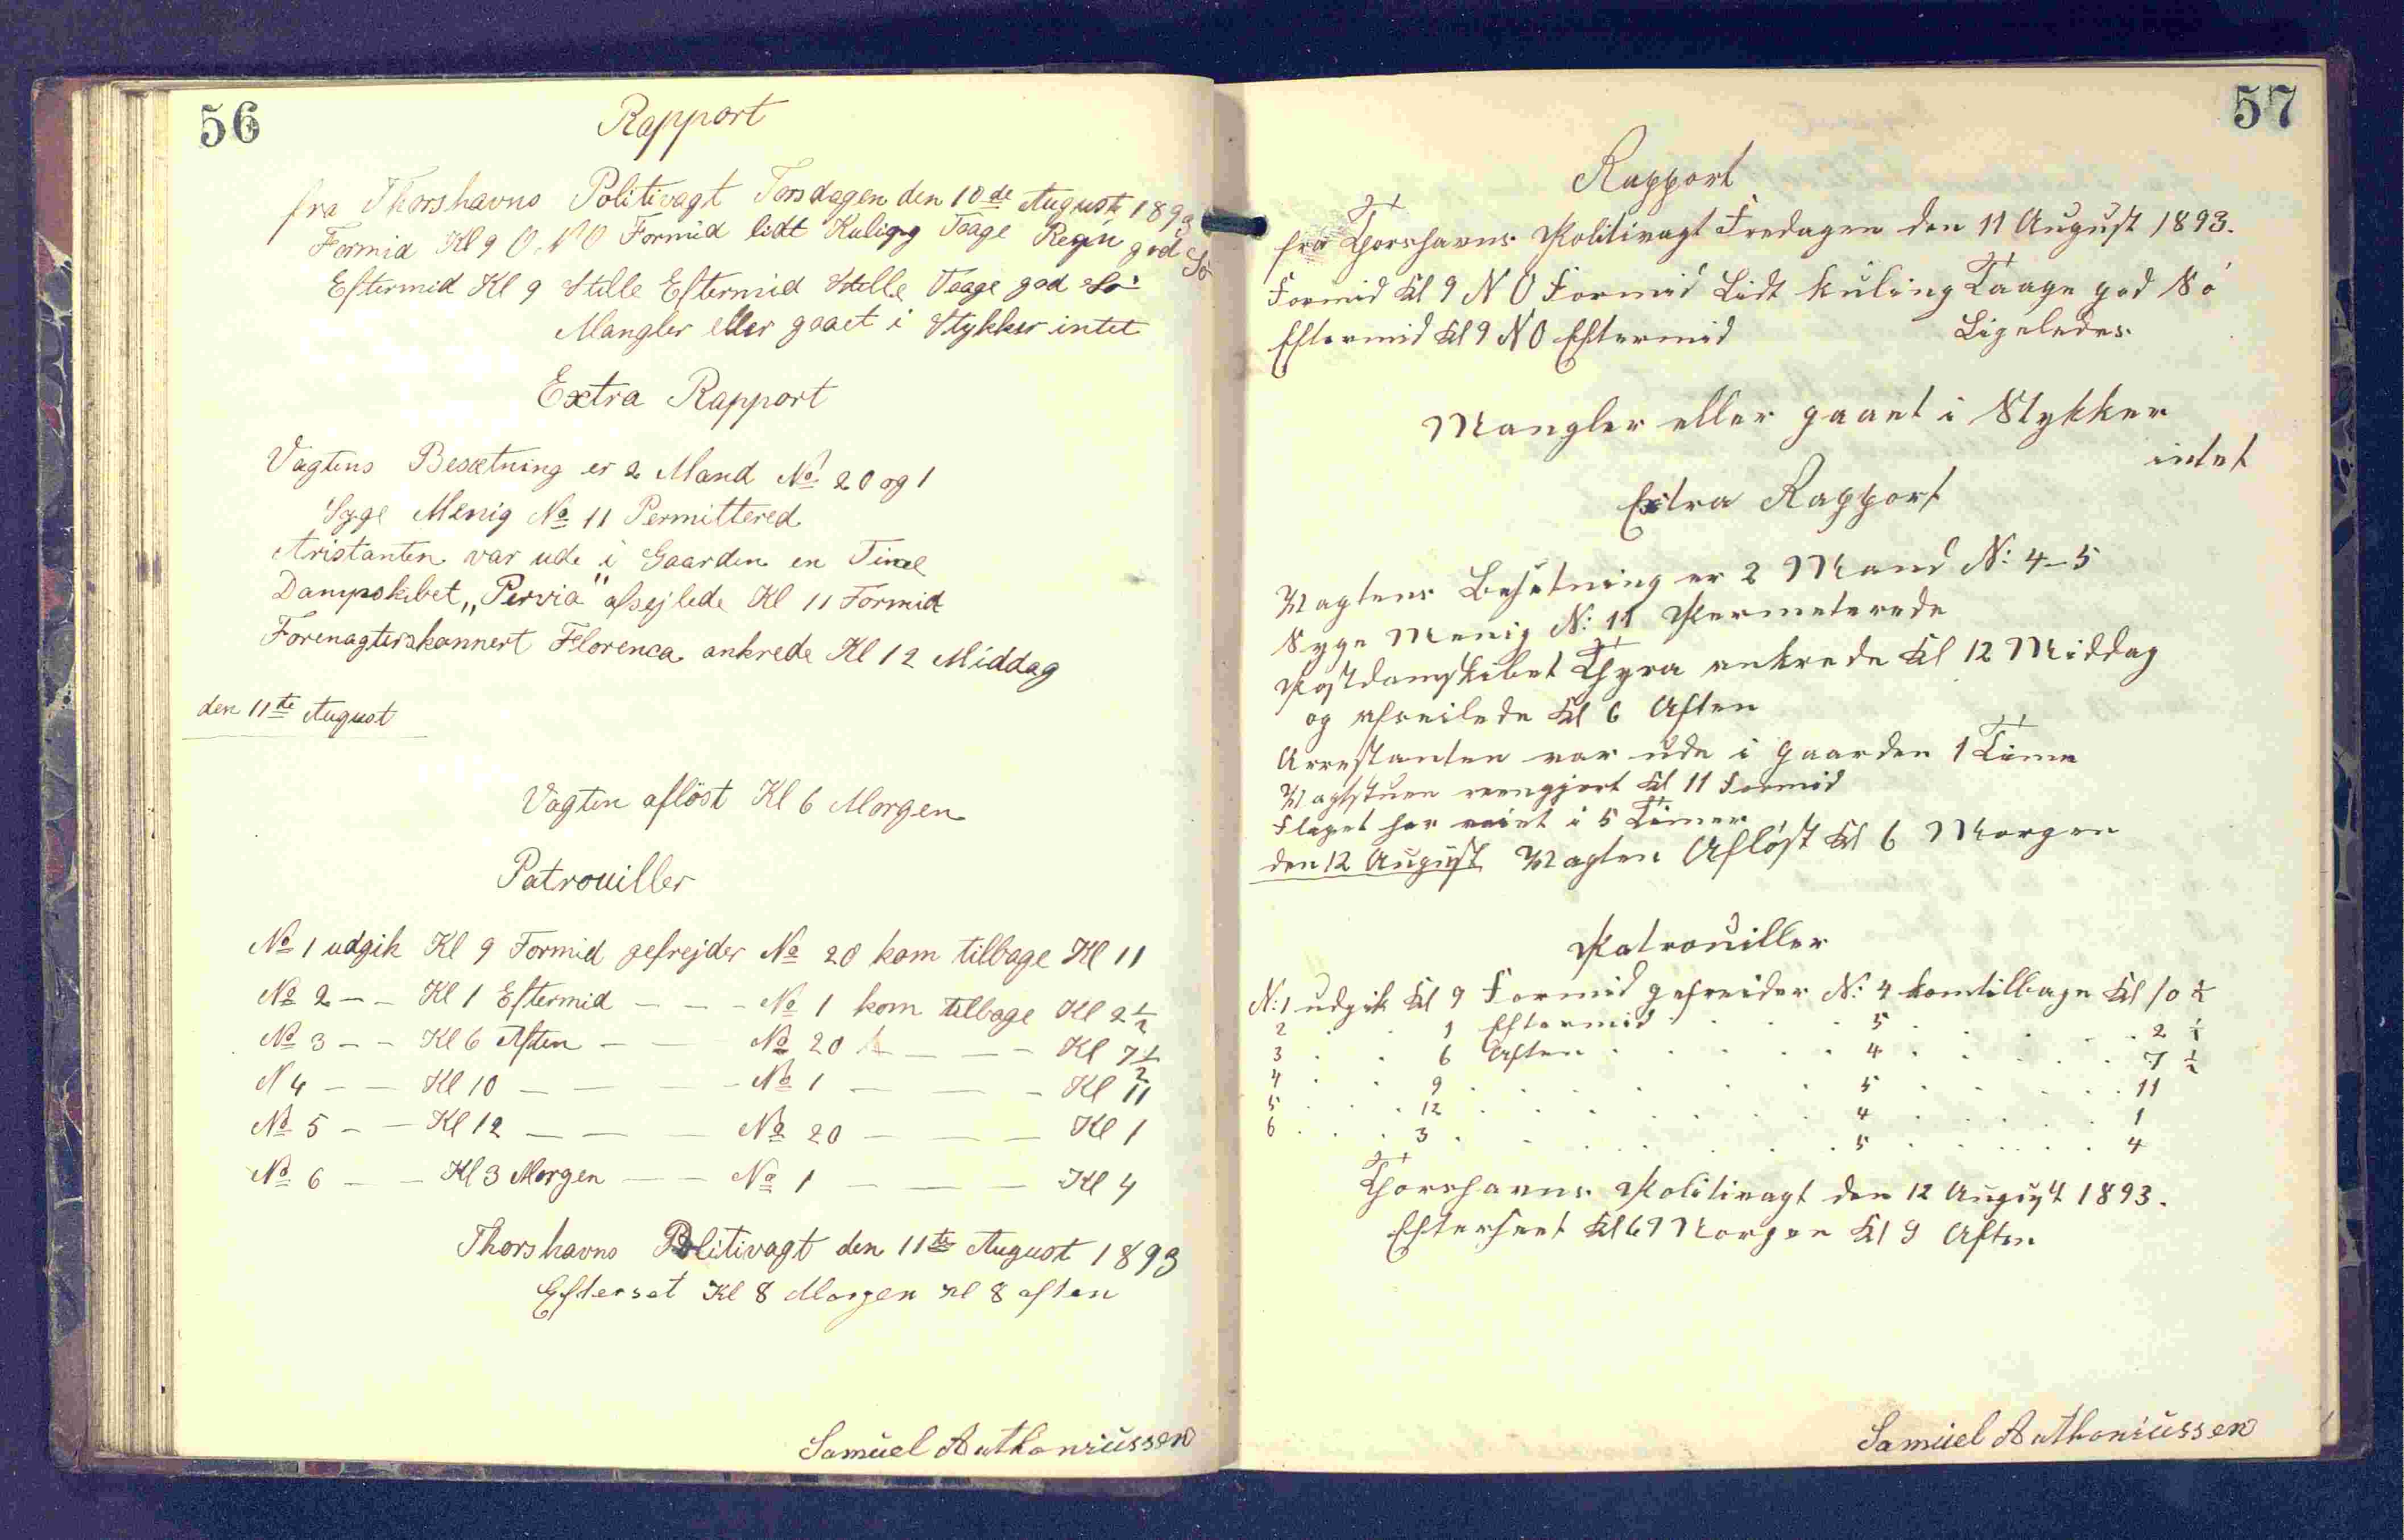 56
Rapport
fra Thorshavns Politivagt Torsdagen den 10de August 1893
Formid Kl 9 O.N.O Formid lidt Kuling Taage Regn god Sö
Eftermid Kl 9 Stille Eftermid Stille Taage god Sö
Mangler eller gaaet i Stykker intet
Extra Rapport
Vagtens Besætning er 2 Mand No 20 og 1
Syge Menig No 11 Permittered
Aristanten var ude i Gaarden en Time
Dampskibet „Pervia" afsejlede Kl 11 Formid
Forenagterskonnert Florenca ankrede Kl 12 Middag
den 11te August
Vagten aflöst Kl 6 Morgen
Patrouiller
No 1 udgik Kl 9 Formid gefrejder No 20 kom tilbage Kl 11
No 2 — — Kl 1 Eftermid — — — No 1 kom tilbage Kl 2 1/2
No 3 — — Kl 6 Aften — — No 20 — — — Kl 7 1/2
N 4 — — Kl 10 — — — — No 1 — — — Kl 11
No 5 — — Kl 12 — — — No 20 — — — Kl 1
No 6 — — Kl 3 Morgen — — No 1 — — — Kl 4
Thorshavns Politivagt den 11te August 1893
Efterset Kl 8 Morgen Kl 8 aften
Samuel Anthoniussen
57
Rapport
fra Thorshavns Politivagt Fredagen den 11 August 1893.
Formid Kl 9 N O Formid Lidt kuling Taage god Sö
Eftermid Kl 9 N O Eftermid Ligeledes
Mangler eller gaaet i Stykker
intet
Extra Rapport
Vagtens Besætning er 2 Mand N: 4-5
Syge Menig N: 11 Permeterede
Postdamskibet Thyra ankrede Kl 12 Middag
og afseilede Kl 6 Aften
Arrestanten var ude i Gaarden 1 Time
Vagtstuen reengjort Kl 11 Formid
Flaget har veiet i 5 Timer
den 12 August Vagten Afløst Kl 6 Morgen
Patrouiller
N: 1 udgik Kl 9 Formid gefreider N: 4 kom tilbage Kl 10 1/2
2 . . 1 Eftermid . . . . 5 . . . . 2 1/2
3 . . 6 Aften . . . . 4 . . . . 7 1/2
4 . . 9 . . . . 5 . . . . 11
5 . . 12 . . . . 4 . . . . 1
6 . . 3 . . . . 5 . . . . 4
Thorshavns Politivagt den 12 August 1893.
Efterseet Kl 6 Morgen Kl 9 Aften
Samuel Anthoniussen